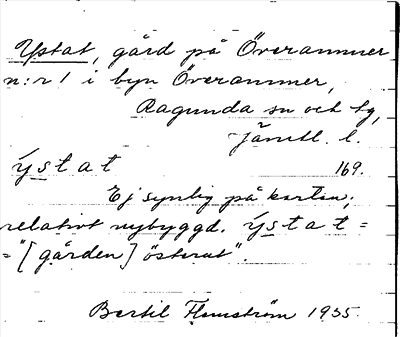 Ystat, gård på Överammer
n:r 1 i byn Överammer,
Ragunda sn och tg,
Jämtl. l.
ýstat 169.
Ej synlig på kartan,
relativt nybyggd. ýstat =
="[gården] österut".
Bertil Flemström 1935.